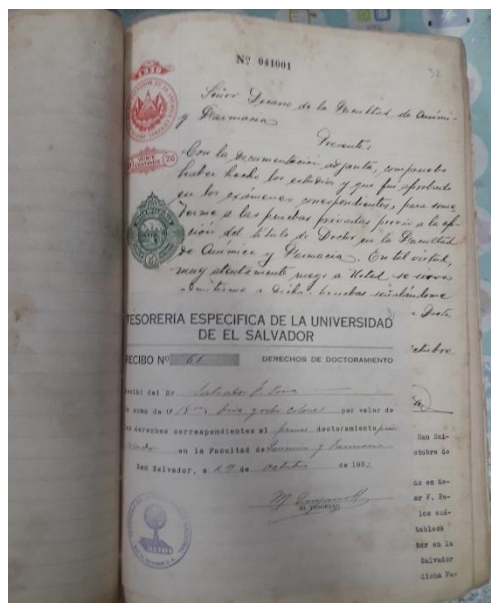 Nº 041001
Señor Decano de la Facultad de Quími-
y Farmacia
Presente:
Con la documentación adjunta, compruebo
haber hecho los estudios y que fui aprobado
en los exámenes correspondientes, para some
terme a las pruebas privadas previo a la op-
ción del título de Doctor en la Facultad
de Química y Farmacia. En tal virtud,
muy atentamente ruego a Usted se sirva
admitirme a dichas pruebas señalándome
TESORERIA ESPECIFICA DE LA UNIVERSIDAD
DE EL SALVADOR
RECIBO Nº 61 DERECHOS DE DOCTORAMIENTO
Recibí del Dr. Salvador
la suma de colones por valor de
los derechos correspondientes al primer doctoramiento pri
vado en la Facultad de Química y Farmacia
San Salvador, a 29 de octubre de 193
EL TESORERO
octubre
San Sal-
octubre de
do en de-
or F. Re-
los exá-
tablece
tór en la
Salvador
dicha Fa-